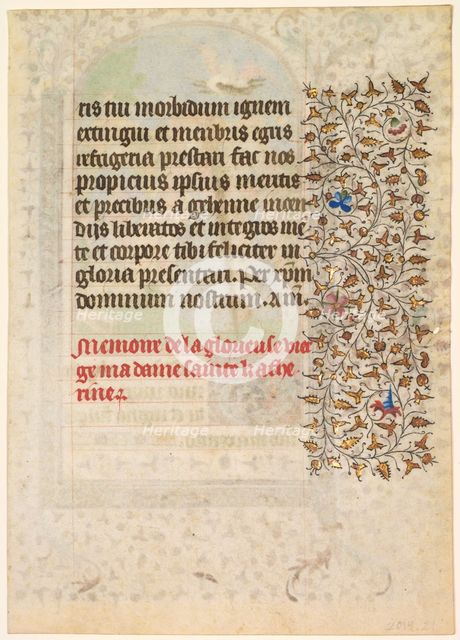 ris tui morbidum ignem
extingui et menbris egris
refrigeria prestari fac nos
propicius ipsius meritis
et precibus a gehenne incen
dijs liberatos et integros me
te et corpore tibi feliciter in
gloria presentari. Per xpm
dominum nostrum. Am.
Memoire de la glorieuse vier
ge ma dame sainte kathe
rine.